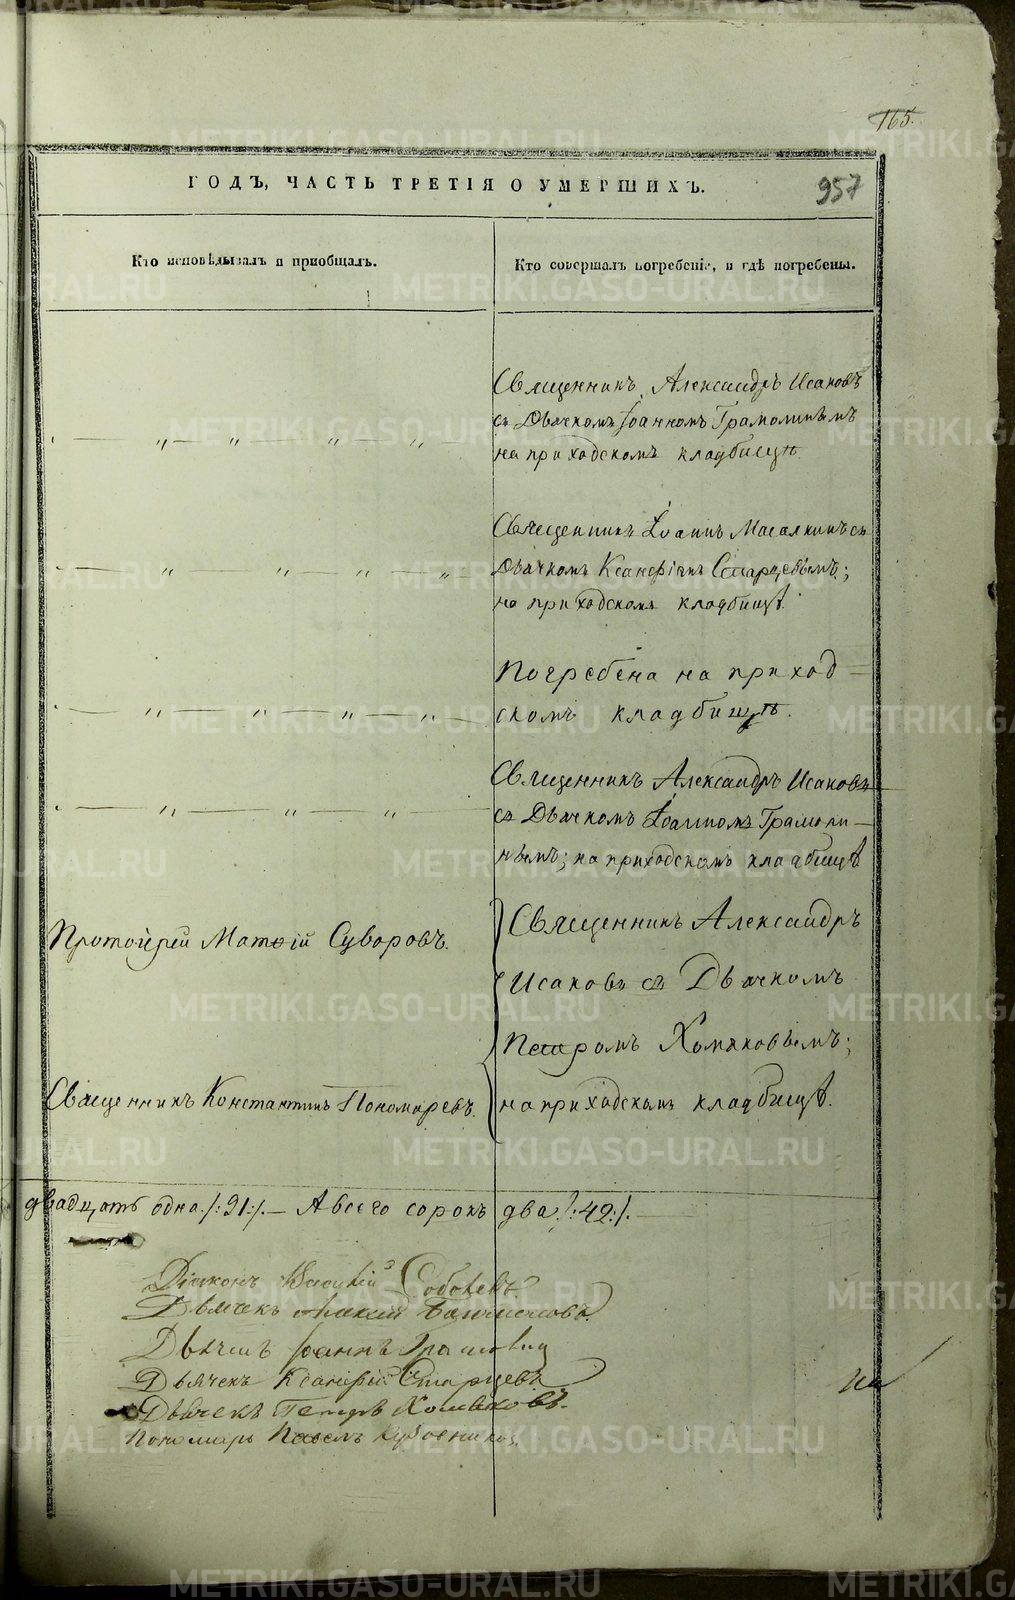 165.
ГОДЪ, ЧАСТЬ ТРЕТІЯ О УМЕРШИХЪ.
957
Кто исповѣдывалъ и пріобщалъ.
Кто совершалъ погребеніе, и гдѣ погребены.
Священникъ Александръ Исаковъ
съ Дьячкомъ Іоанномъ Грамолинымъ
на приходскомъ кладбищѣ.
Священникъ Іоаннъ Масалкинъ съ
Дьячкомъ Ксанфіемъ Старцевымъ;
на приходскомъ кладбищѣ.
Погребена на приход
скомъ кладбищѣ.
Священникъ Александръ Исаковъ
съ Дьячкомъ Іоанномъ Грамоли
нымъ; на приходскомъ кладбищѣ
Протоіерей Матѳій Суворовъ.
Священникъ Константинъ Пономаревъ.
Священникъ Александръ
Исаковъ съ Дьячкомъ
Петромъ Хомяковымъ;
на приходскомъ кладбищѣ.
двадцать одна /:21:/. — А всего сорокъ два /:42:/.
Діаконъ Василій
Дьячекъ
Дьячекъ Іоаннъ Грамолин
Дьячекъ Ксанфій Старцевъ
Дьячекъ Петръ Хомяковъ.
Пономарь Павелъ
METRIKI.GASO-URAL.RU